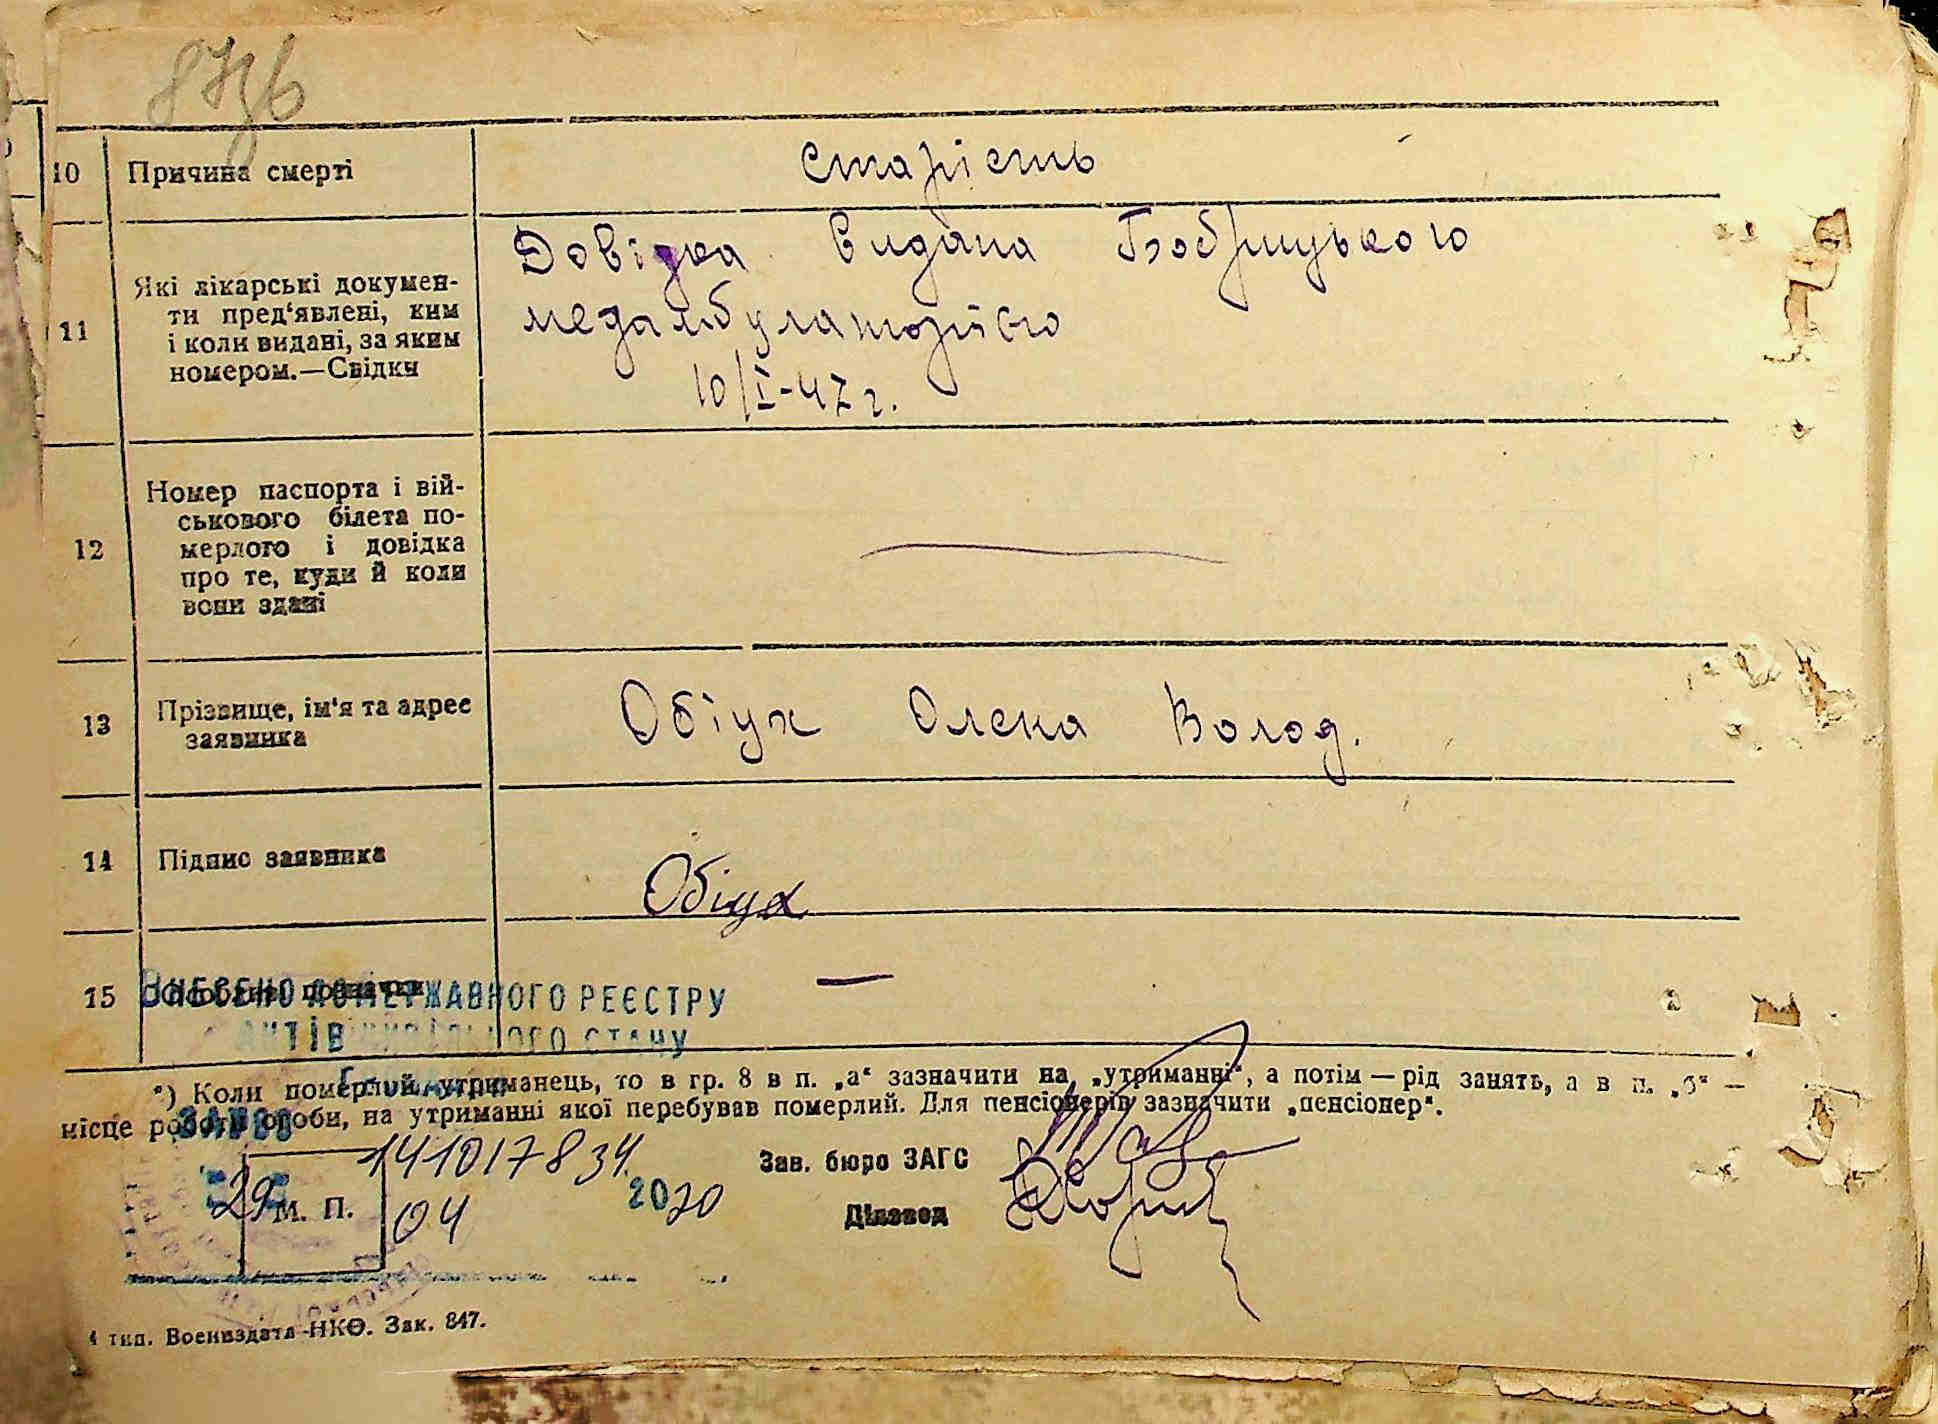 10 Причина смерті старість
11 Які лікарські докумен-
ти пред‘явлені, ким
і коли видані, за яким
номером.—Свідки
Довідка видана Бобрицького
медамбулаторією
10/I-47 г.
12 Номер паспорта і вій-
ськового білета по-
мерлого і довідка
про те, куди й коли
вони здані
13 Прізвище, ім‘я та адрес
заявника
Обіух Олена Волод.
14 Підпис заявника Обіух
15
ВНЕСЕНО ДО ДЕРЖАВНОГО РЕЄСТРУ
АКТІВ ЦИВІЛЬНОГО СТАНУ
*) Коли померлий утриманець, то в гр. 8 в п. „а“ зазначити на „утриманні“, а потім — рід занять, а в п. „б“ —
місце роботи особи, на утриманні якої перебував померлий. Для пенсіонерів зазначити „пенсіонер“.
ЗАПИС 141017834
29 04 2020
М. П.
Зав. бюро ЗАГС
Діловод
4 тип. Воениздата НКО. Зак. 847.